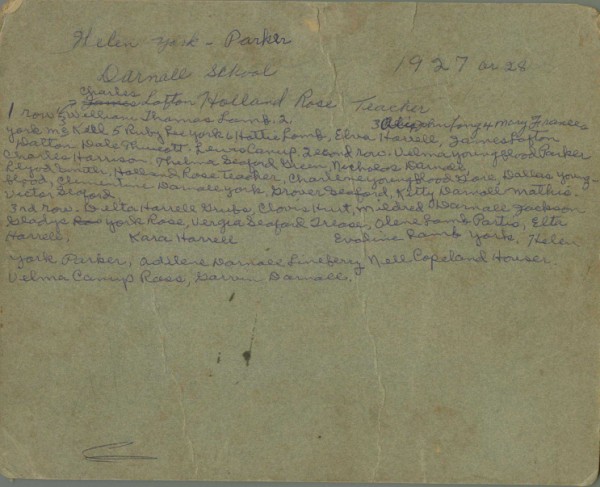 Helen York - Parker
1927 or 28
Darnall School
Charles
James Lofton Holland Rose Teacher
1 row, William Thomas Lamb. 2
3 John Long 4 Mary Frances
York Mc Kell 5 Ruby Lee York 6 Hattie Lamb, Elva Harrell, James Lofton
Dalton Dale Trucott. Lewis Canup, 2econd row. Velma Youngblood Parker
Charles Harrison, Thelma Seaford Green Nocholos Darnall
Lloyd Snider, Holland Rose Teacher, Charline Youngblood Dore, Dallas Young-
blood, Clementine Darnall York, Grover Seaford, Kitty Darnall Mathis
Victor Seaford
3rd row. Delta Harrell Grubs, Clovis Hurt, Mildred Darnall Jackson
Gladys York Rose, Vergia Seaford Trease, Olene Lamb Partis, Elta
Harrell, Kara Harrell Evaline Lamb York, Helen
York Parker, Adilene Darnall Linebery Nell Copeland Houser
Velma Canup Rass, Darrin Darnall.